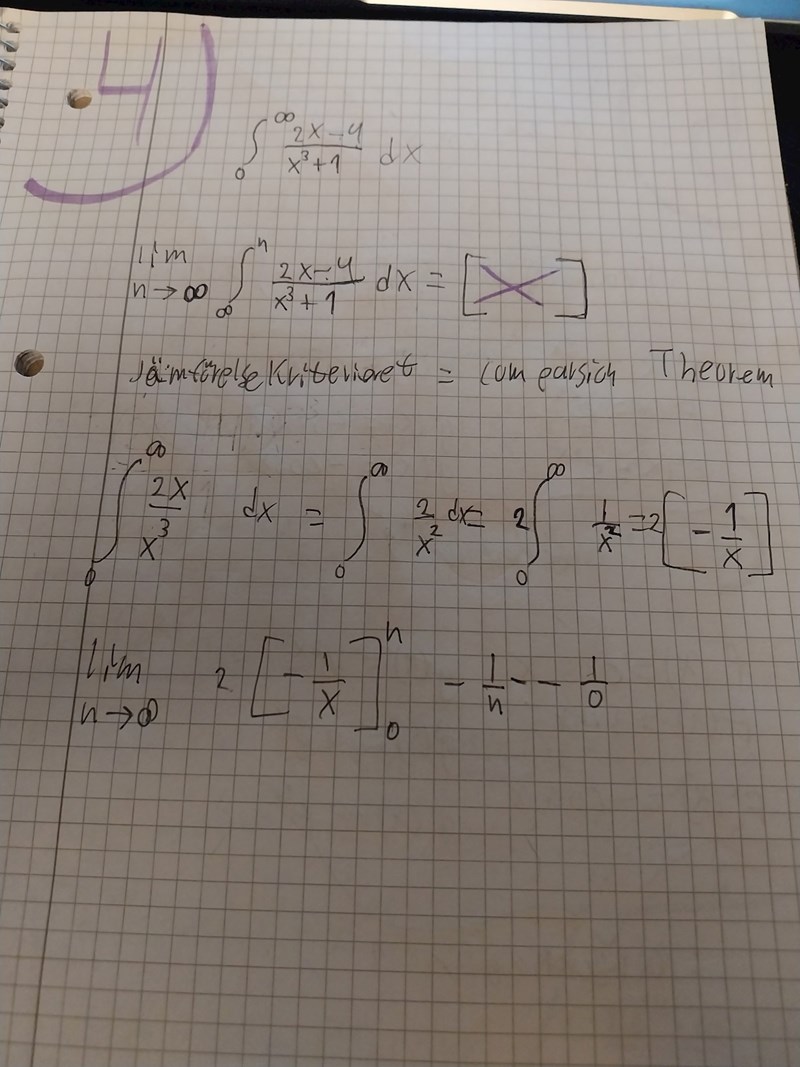 4)
∫₀^∞ (2x-4)/(x³+1) dx
lim n→∞ ∫_∞^n (2x-4)/(x³+1) dx = [X]
Jämförelse Kriterioret = comparsich Theorem
∫₀^∞ 2x/x³ dx = ∫₀^∞ 2/x² dx = 2 ∫₀^∞ 1/x² = 2[-1/x]
lim n→∞ 2[-1/x]₀^n -1/n - - 1/0